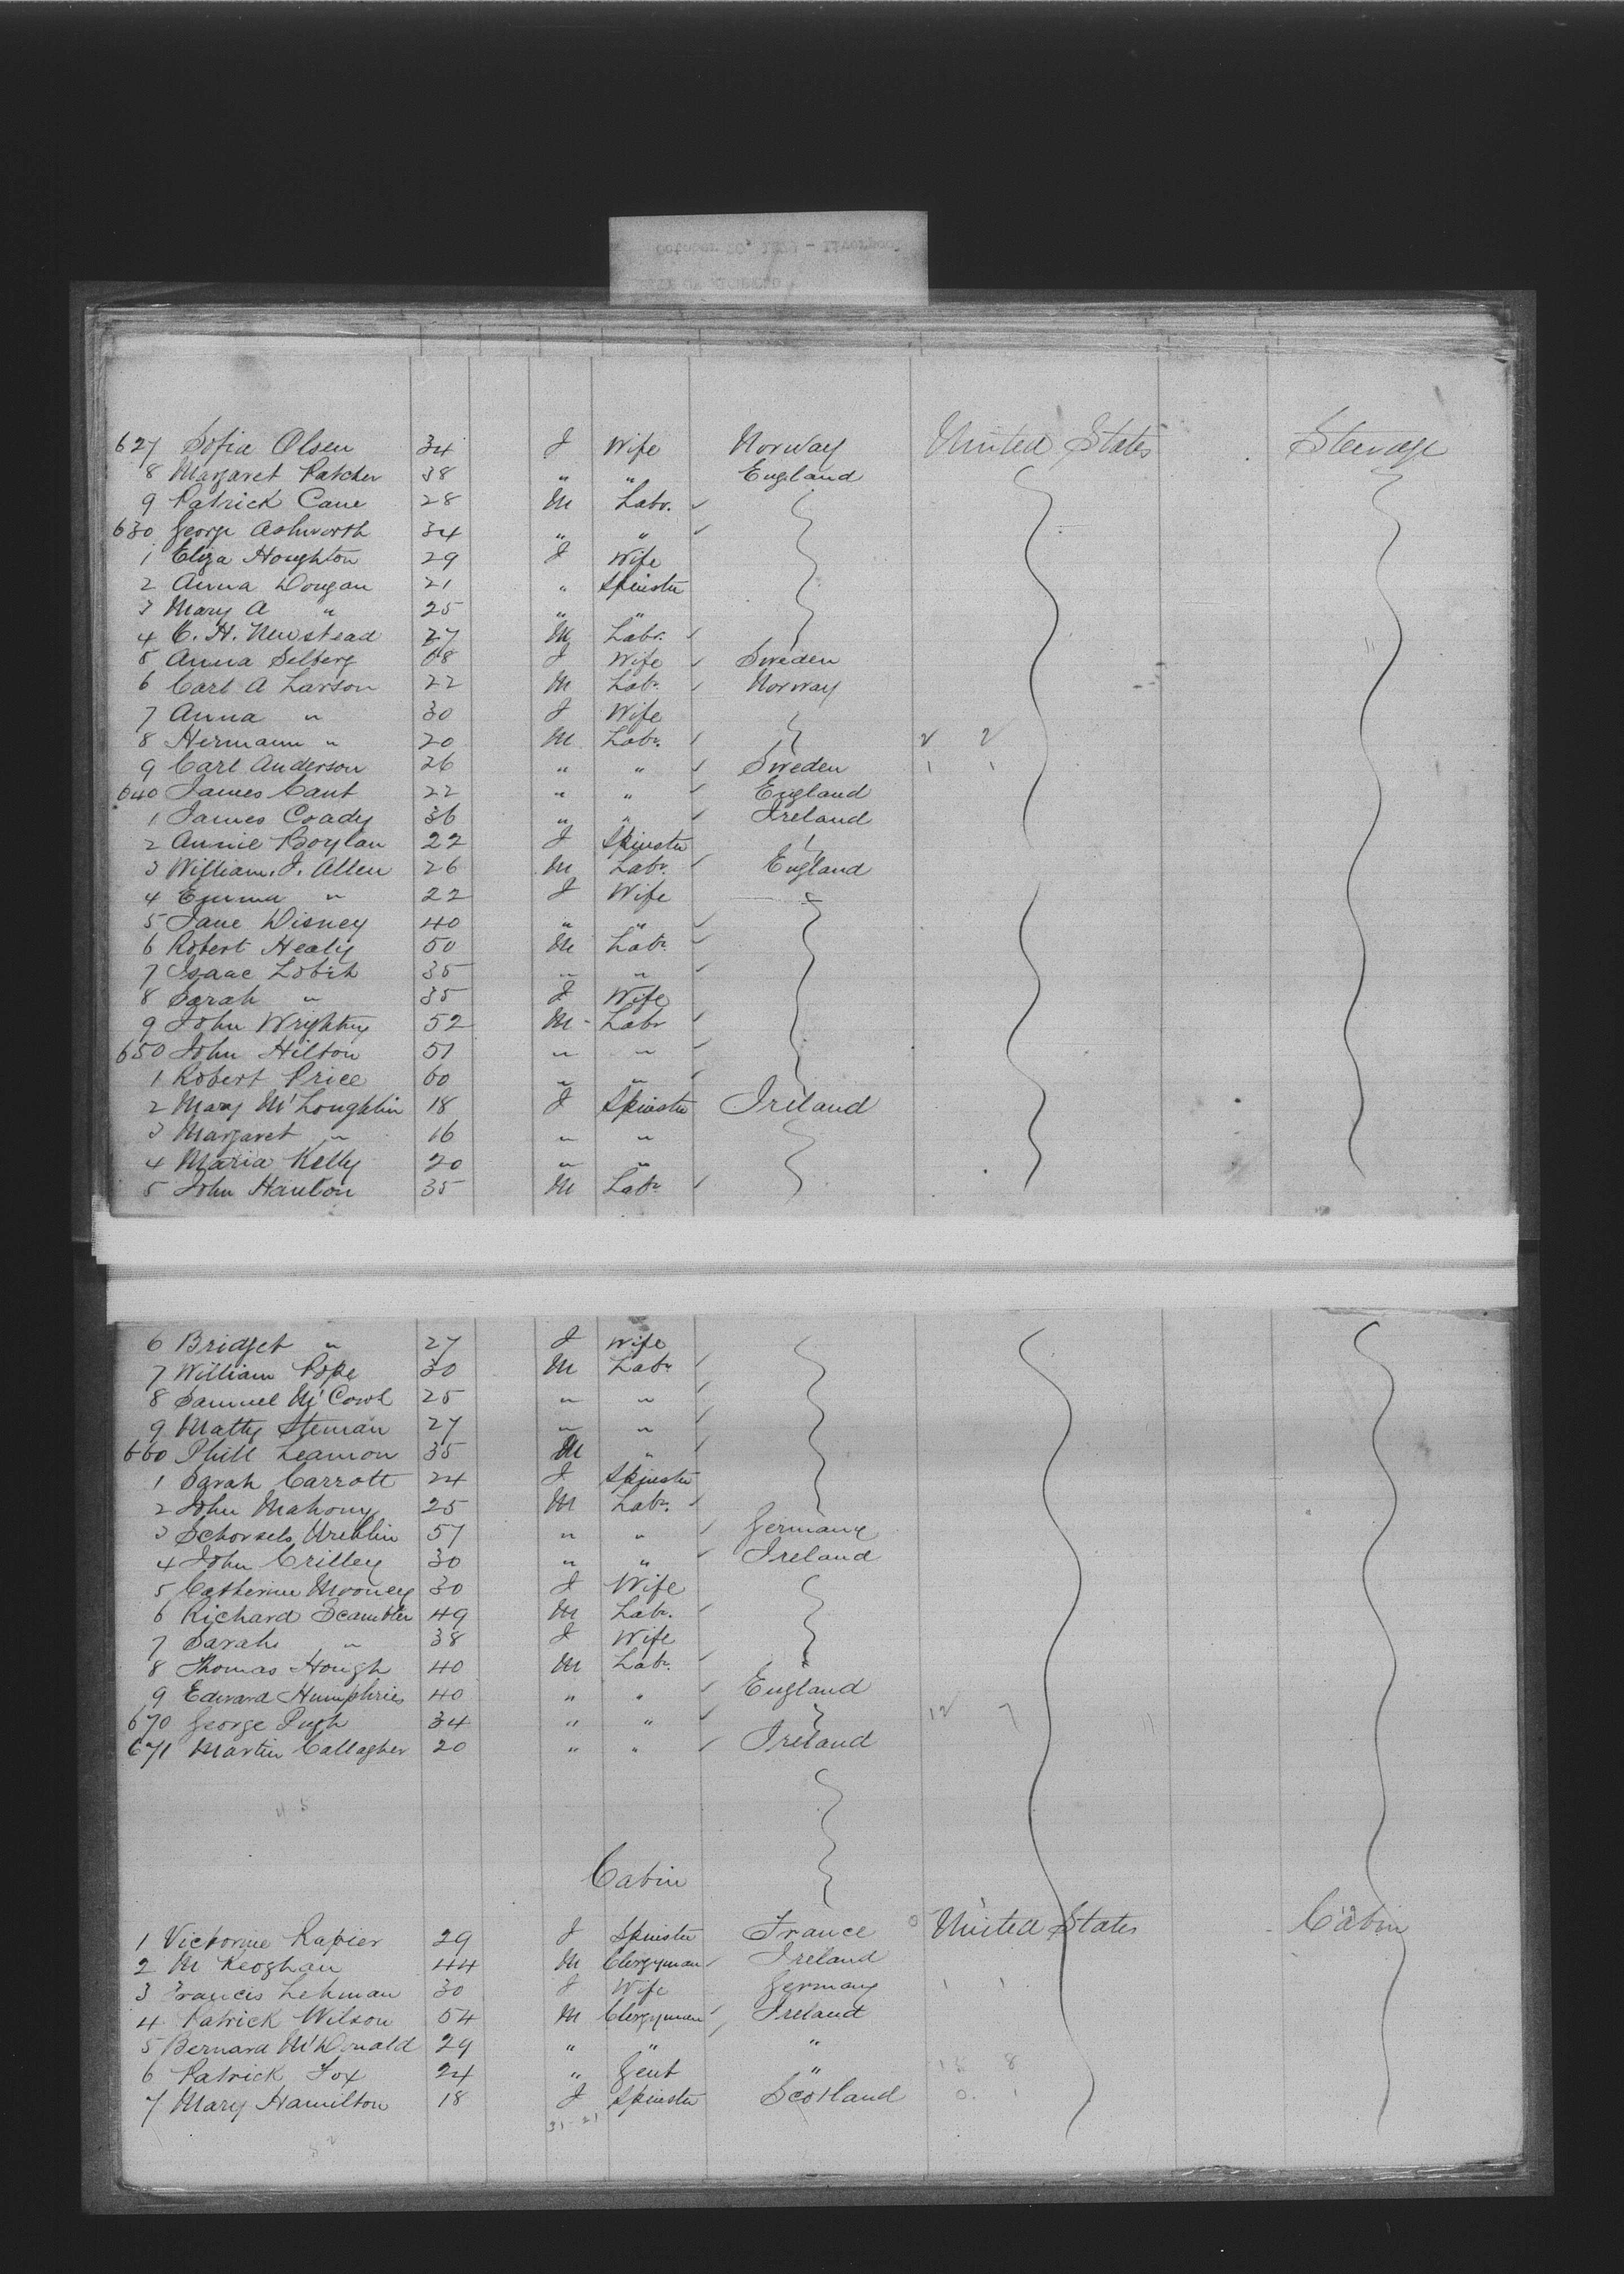 627 Sofia Olsen 34 F Wife Norway United States Steerage
8 Margaret Patcher 38 " " England
9 Patrick Cane 28 M Labr.
630 George Ashworth 34 " "
1 Eliza Houghton 29 F Wife
2 Anna Dougan 21 " Spinster
3 Mary A " 25 " "
4 C. H. Newstead 27 M Labr.
5 Anna Selberg F Wife Sweden
6 Carl A Larson 22 M Labr Norway
7 Anna " 30 F Wife
8 Hermann " 20 M Labr.
9 Carl Anderson 26 " " Sweden
640 James Cant 22 " " England
1 James Coady 36 " " Ireland
2 Annie Boylan 22 F Spinster
3 William. J. Allen 26 M Labr. England
4 Emma " 22 F Wife
5 Jane Disney 40 " "
6 Robert Healy 50 M Labr.
7 Isaac 35 " "
8 Sarah " 35 F Wife
9 John 52 M Labr
650 John Hilton 51 " "
1 Robert Price 60 " "
2 Mary McLoughlin 18 F Spinster Ireland
3 Margaret " 16 " "
4 Maria Kelly 20 " "
5 John Hanlon 35 M Labr
6 Bridget " 27 F Wife
7 William Pope 30 M Labr
8 Samuel 25 " "
9 Matty 27 " "
660 Phill Leamon 35 M "
1 Sarah Carrott 24 F Spinster
2 John Mahony 25 M Labr.
3 51 " " Germany
4 John Crilley 30 " " Ireland
5 Catherine Mooney 30 F Wife
6 Richard Scambler 49 M Labr.
7 Sarah " 38 F Wife
8 Thomas Hough 40 M Labr.
9 Edward Humphries 40 " " England
670 George Pugh 34 " "
671 Martin Callagher 20 " " Ireland
Cabin
1 Rapier 29 F Spinster France United States Cabin
2 M Keoghan 44 M Clergyman Ireland
3 Francis Lehman 30 F Wife Germany
4 Patrick Wilson 54 M Clergyman Ireland
5 Bernard McDonald 29 " " "
6 Patrick Fox 24 " Gent "
7 Mary Hamilton 18 F Spinster Scotland